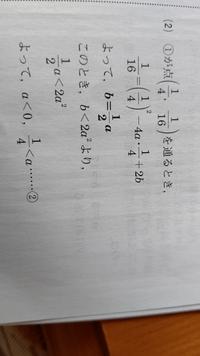 (2) ①が点(1/4, 1/16)を通るとき,
1/16=(1/4)²-4a・1/4+2b
よって, b=1/2a
このとき, b<2a²より,
1/2a<2a²
よって, a<0, 1/4<a……②